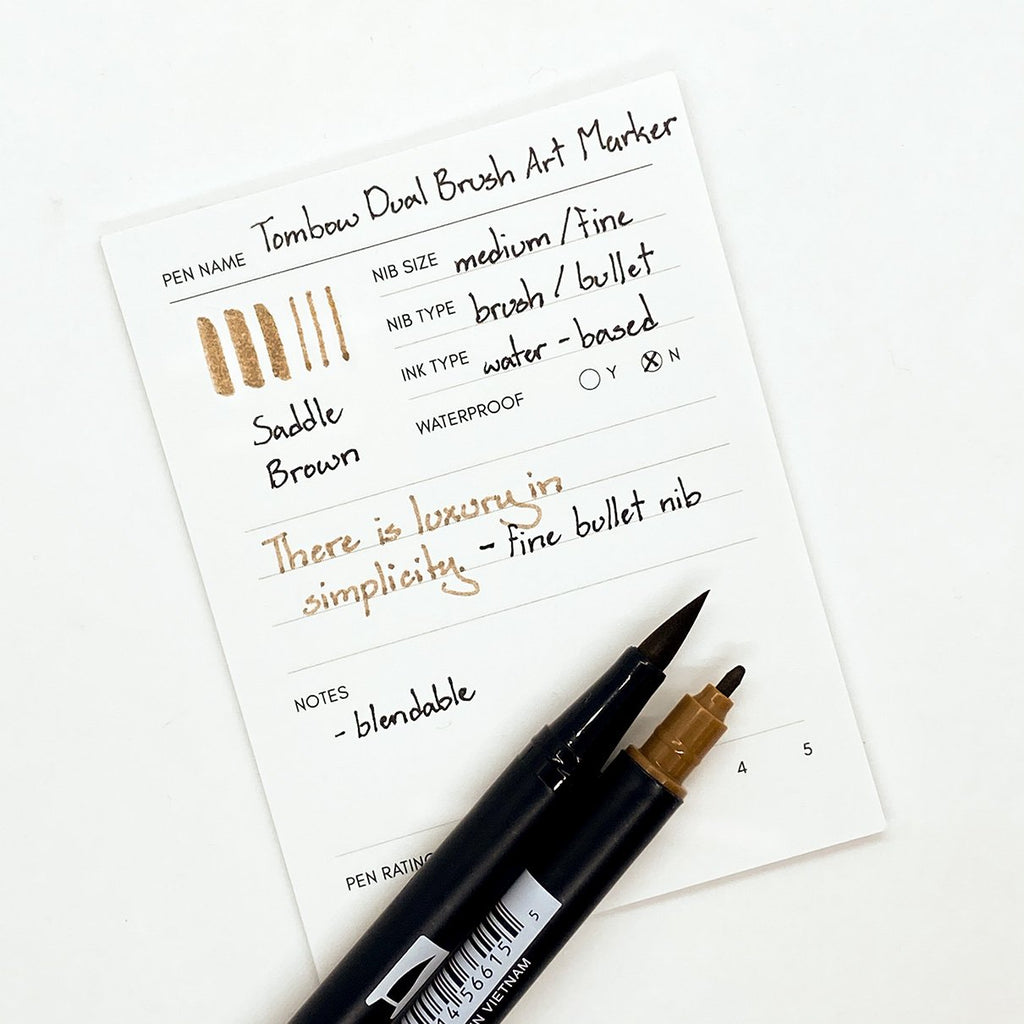 PEN NAME Tombow Dual Brush Art Marker
NIB SIZE medium/fine
NIB TYPE brush/bullet
INK TYPE water-based
WATERPROOF Y N
Saddle
Brown
There is luxury in
simplicity. - fine bullet nib
NOTES
- blendable
4 5
PEN RATING
14 56615 5
VIETNAM